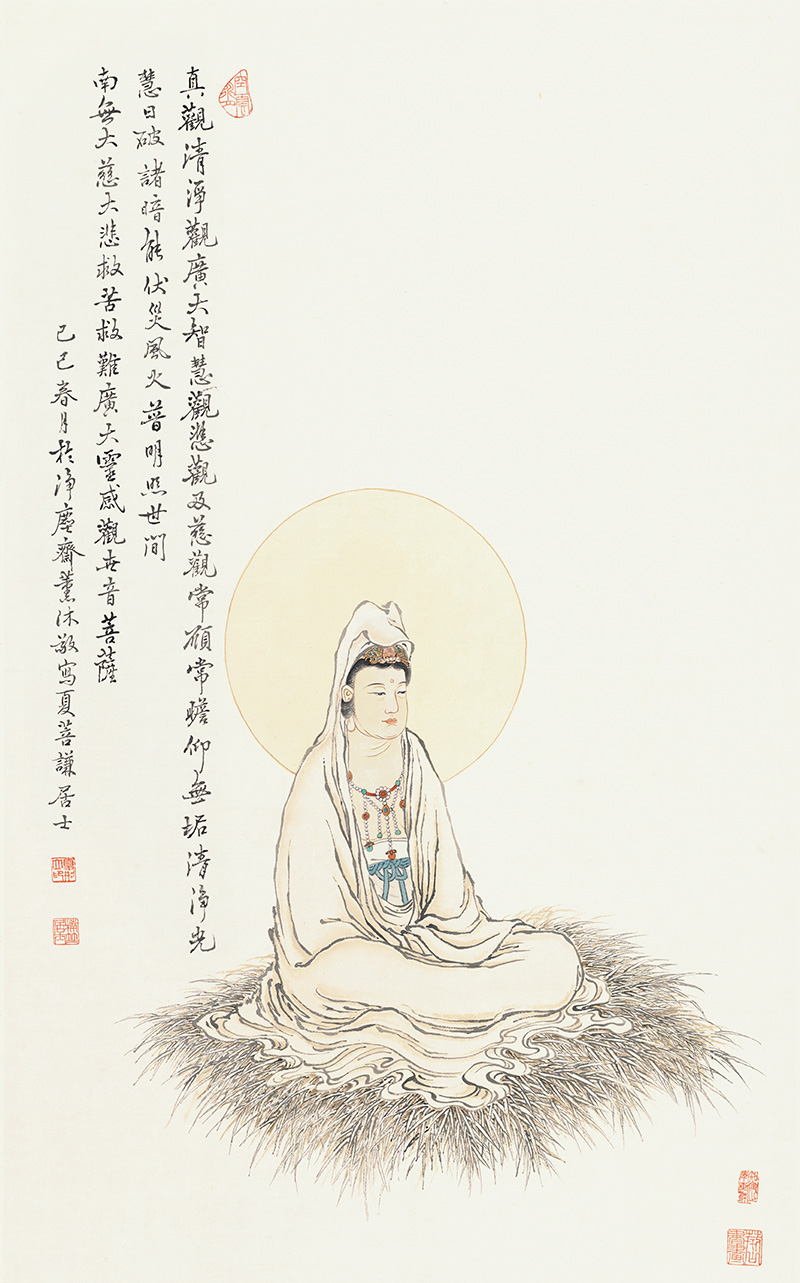 真觀清淨觀廣大智慧觀悲觀及慈觀常願常瞻仰無垢清淨光
慧日破諸暗能伏災風火普明照世間
南無大慈大悲救苦救難廣大靈感觀世音菩薩
己巳春月於淨塵齋薰沐敬寫夏荅謙居士